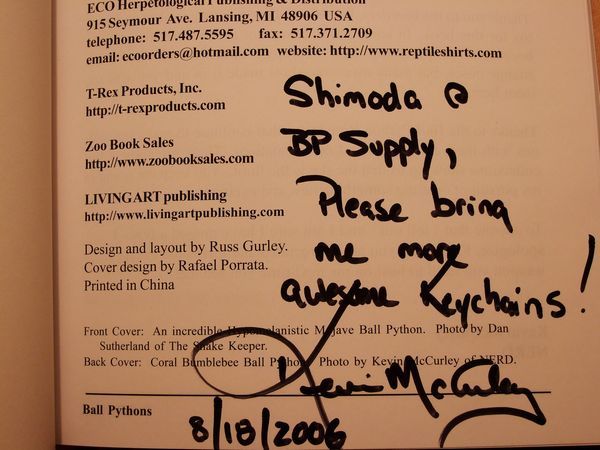 ECO Herpetological Publishing & Distribution
915 Seymour Ave. Lansing, MI 48906 USA
telephone: 517.487.5595 fax: 517.371.2709
email: ecoorders@hotmail.com website: http://www.reptileshirts.com
T-Rex Products, Inc.
http://t-rexproducts.com
Zoo Book Sales
http://www.zoobooksales.com
LIVINGART publishing
http://www.livingartpublishing.com
Design and layout by Russ Gurley.
Cover design by Rafael Porrata.
Printed in China
Shimoda @
BP Supply,
Please bring
me more
awesome Keychains!
Front Cover: An incredible Hypomelanistic Mojave Ball Python. Photo by Dan
Sutherland of The Snake Keeper.
Back Cover: Coral Bumblebee Ball Python. Photo by Kevin McCurley of NERD.
Kevin McCurley
Ball Pythons
8/18/2006